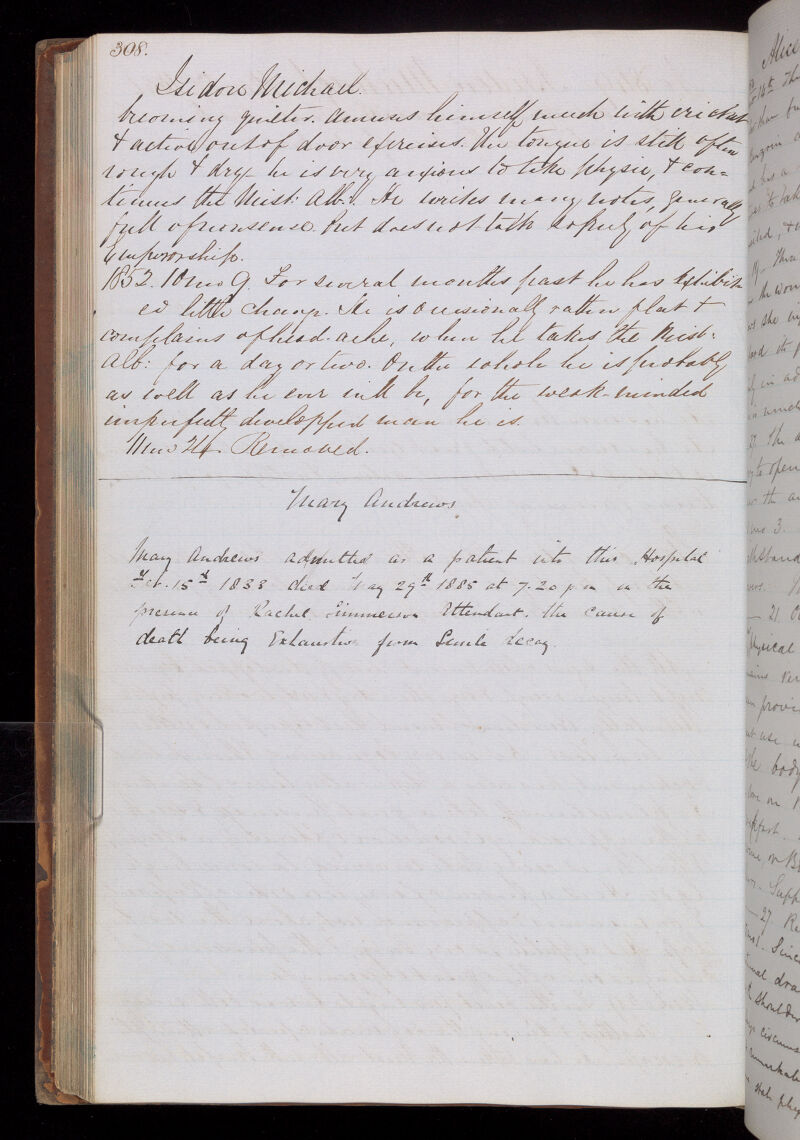 308.
Isidore Michael.
becoming quieter. amuses himself much with cricket
& active out of door exercises. The tongue is still often
rough & dry he is very anxious to take physic, & con=
tinues the Mist: Alb:. He writes many notes, generally
full of nonsense but does not talk so freely of his
Emperorship.
1852. 10 mo 9. For several months past he has exhibit
ed little change. He is occasionally rather flat &
complains of head-ache, when he takes the Mist:
Alb: for a day or two. On the whole he is probably
as well as he ever will be, for the weak-minded
imperfectly developped man he is.
11 mo 24. Removed.
Mary Andrews.
Mary Andrews admitted as a patient into this Hospital
15th 1833 died May 29th 1885 at 7.20 p m in the
presence of Rachel Attendant. the cause of
death being Exhaustion from Senile decay.
Alice
14th
physical
the body
27
Since
shoulder